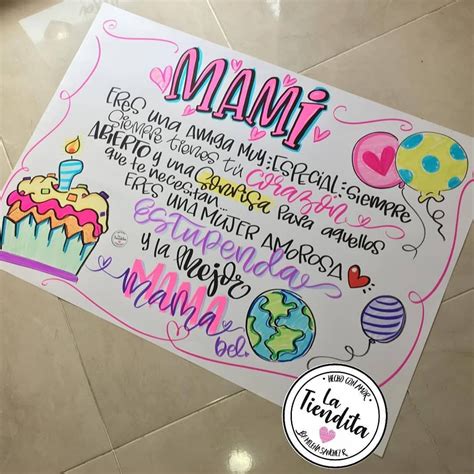 MAMi
ERES UNA AMIGA MUY ESPECIAL: SIEMPRE
Siempre tienes tu corazón
ABIERTO y UNA SONRISA PARA AQUELLOS
que te necesitan...
ERES UNA MUJER AMOROSA
estupenda
y la Mejor
MAMÁ
mama
del
HECHO CON AMOR
La
Tiendita
BY MILENA SANCHEZ R.